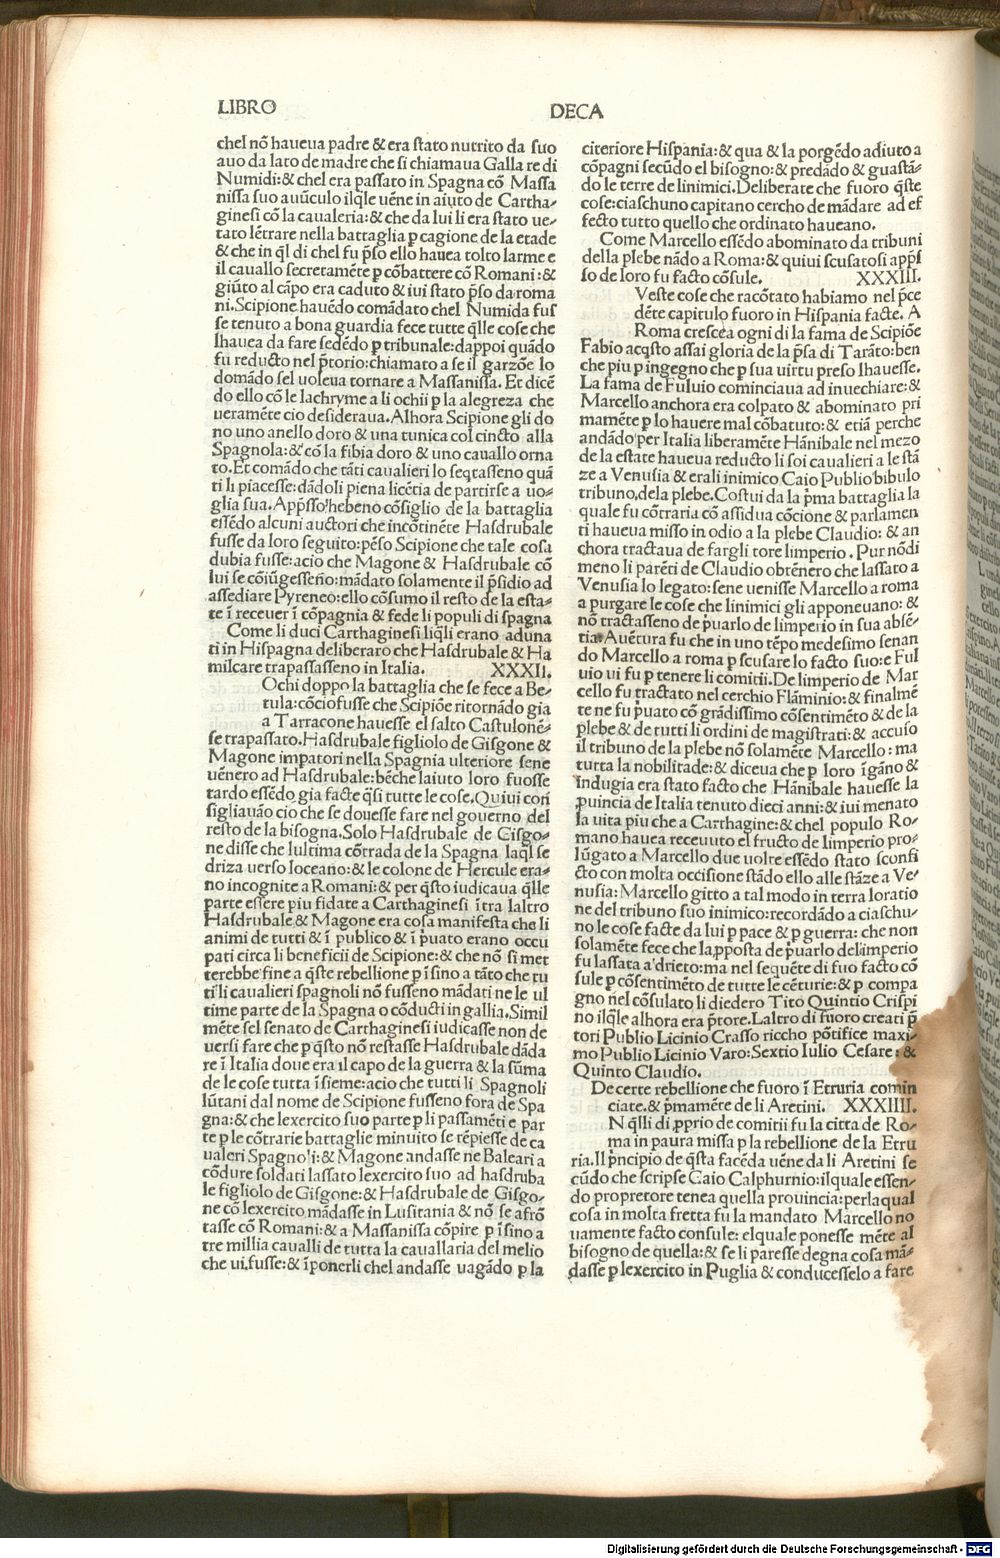 LIBRO
DECA
chel nõ haueua padre & era ſtato nutrito da ſuo
auo da lato de madre che ſi chiamaua Galla re di
Numidi:& chel era paſſato in Spagna cõ Maſſa
niſſa ſuo auũculo ilq̃le uẽne in aiuto de Cartha-
gineſi cõ la caualeria:& che da lui li era ſtato ue-
tato lẽtrare nella battaglia ꝑ cagione de la etade
& che in q̃l di chel fu p̃ſo ello hauea tolto larme e
il cauallo ſecretamẽte ꝑ cõbattere cõ Romani:&
giũto al cãpo era caduto & iui ſtato p̃ſo da roma
ni.Scipione hauẽdo comãdato chel Numida fuſ
ſe tenuto a bona guardia fece tutte q̃lle coſe che
lhauea da fare ſedẽdo ꝑ tribunale:dappoi quãdo
fu reducto nel p̃torio:chiamato a ſe il garzõe lo
domãdo ſel uoleua tornare a Maſſaniſſa. Et dicẽ
do ello cõ le lachryme a li ochii ꝑ la alegreza che
ueramẽte cio deſideraua.Alhora Scipione gli do
no uno anello doro & una tunica col cincto alla
Spagnola:& cõ la fibia doro & uno cauallo orna
to.Et comãdo che tãti caualieri lo ſeq̃taſſeno quã
ti li piaceſſe:dãdoli piena licẽtia de partirſe a uo-
glia ſua.App̃ſſo hebeno cõſiglio de la battaglia
eſſẽdo alcuni auctori che incõtinẽte Haſdrubale
fuſſe da loro ſeguito:pẽſo Scipione che tale coſa
dubia fuſſe:acio che Magone & Haſdrubale cõ
lui ſe cõiũgeſſeno:mãdato ſolamente il p̃ſidio ad
aſſediare Pyreneo:ello cõſumo il reſto de la eſta-
te ĩ receuer ĩ cõpagnia & fede li populi di ſpagna
Come li duci Carthagineſi liq̃li erano aduna
ti in Hiſpagna deliberaro che Haſdrubale & Ha
milcare trapaſſaſſeno in Italia. XXXII.
Ochi doppo la battaglia che ſe fece a Be-
tula:cõciofuſſe che Scipiõe ritornãdo gia
a Tarracone haueſſe el ſalto Caſtulonẽ-
ſe trapaſſato.Haſdrubale figliolo de Giſgone &
Magone impatori nella Spagna ulteriore ſene
uẽnero ad Haſdrubale:bẽche laiuto loro fuoſſe
tardo eſſẽdo gia facte q̃ſi tutte le coſe.Quiui con
ſigliauão cio che ſe doueſſe fare nel governo del
reſto de la biſogna.Solo Haſdrubale de Giſgo-
ne diſſe che lultima cõtrada de la Spagna laq̃l ſe
driza uerſo loceano:& le colone de Hercule era-
no incognite a Romani:& per q̃ſto iudicaua q̃lle
parte eſſere piu fidate a Carthagineſi ĩtra laltro
Haſdrubale & Magone era coſa manifeſta che li
animi de tutti & ĩ publico & ĩ p̃uato erano occu
pati circa li beneficii de Scipione:& che nõ ſi met
terebbe fine a q̃ſte rebellione ꝑ ĩſino a tãto che tu
ti li caualieri ſpagnoli nõ fuſſeno mãdati ne le ul
time parte de la Spagna o cõducti in gallia.Simil
mẽte ſel ſenato de Carthagineſi iudicaſſe non de
uerſi fare che ꝑ q̃ſto nõ reſtaſſe Haſdrubale dãda
re ĩ Italia doue era il capo de la guerra & la ſũma
de le coſe tutta ĩſieme:acio che tutti li Spagnoli
lũtani dal nome de Scipione fuſſeno fora de Spa
gna:& che lexercito ſuo parte ꝑ li paſſamẽti e par
te ꝑ le cõtrarie battaglie minuito ſe rẽpieſſe de ca
ualeri Spagnoli:& Magone andaſſe ne Baleari a
cõdure ſoldati laſſato lexercito ſuo ad haſdruba
le figliolo de Giſgone:& Haſdrubale de Giſgo-
ne cõ lexercito mãdaſſe in Luſitania & nõ ſe afrõ
taſſe cõ Romani:& a Maſſaniſſa cõpire ꝑ ĩſino a
tre millia caualli de tutta la cauallaria del melio
che ui.fuſſe:& ĩponerli chel andaſſe uagãdo ꝑ la
citeriore Hiſpania:& qua & la porgẽdo adiuto a
cõpagni ſecũdo el biſogno:& predãdo & guaſtã-
do le terre de linimici.Deliberate che fuoro q̃ſte
coſe:ciaſchuno capitano cercho de mãdare ad ef
fecto tutto quello che ordinato haueano.
Come Marcello eſſẽdo abominato da tribuni
della plebe nãdo a Roma:& quiui ſcuſatoſi app̃ſ
ſo de loro fu facto cõſule. XXXIII.
Veſte coſe che racõtato habiamo nel p̃ce
dẽte capitulo fuoro in Hiſpania facte. A
Roma creſcea ogni di la fama de Scipiõe
Fabio acq̃ſto aſſai gloria de la p̃ſa di Tarãto:ben
che piu ꝑ ingegno che ꝑ ſua uirtu preſo lhaueſſe.
La fama de Fuluio cominciaua ad inuechiare:&
Marcello anchora era colpato & abominato pri
mamẽte ꝑ lo hauere mal cõbatuto:& etiã perche
andãdo per Italia liberamẽte Hãnibale nel mezo
de la eſtate haueua reducto li ſoi caualieri a le ſtã
ze a Venuſia & erali inimico Caio Publio bibulo
tribuno,de la plebe.Coſtui da la p̃ma battaglia la
quale fu cõtraria cõ aſſidua cõcione & parlamen
ti haueua miſſo in odio a la plebe Claudio: & an
chora tractaua de fargli tore limperio. Pur nõdi
meno li parẽti de Claudio obtẽnero che laſſato a
Venuſia lo legato:ſene ueniſſe Marcello a roma
a purgare le coſe che linimici gli apponeuano: &
nõ tractaſſeno de p̃uarlo de limperio in ſua abſẽ-
tia.Auẽtura fu che in uno tẽpo medeſimo ſenan
do Marcello a roma ꝑ ſcuſare lo facto ſuo:e Ful
uio ui fu ꝑ tenere li comitii.De limperio de Mar
cello fu tractato nel cerchio Flãminio:& finalmẽ
te ne fu p̃uato cõ grãdiſſimo cõſentimẽto & de la
plebe & de tutti li ordini de magiſtrati:& accuſo
il tribuno de la plebe nõ ſolamẽte Marcello : ma
tutta la nobilitade:& diceua che ꝑ loro ĩgãno &
indugia era ſtato facto che Hãnibale haueſſe la
puincia de Italia tenuto dieci anni:& iui menato
la uita piu che a Carthagine:& chel populo Ro-
mano hauea receuuto el fructo de limperio pro-
lũgato a Marcello due uolte eſſẽdo ſtato ſconfi
cto con molta occiſione ſtãdo ello alle ſtãze a Ve-
nuſia:Marcello gitto a tal modo in terra loratio
ne del tribuno ſuo inimico:recordãdo a ciaſchu-
no le coſe facte da lui ꝑ pace & ꝑ guerra: che non
ſolamẽte fece che la ppoſta de p̃uarlo de limperio
fu laſſata a drieto:ma nel ſequẽte di fuo facto cõ
ſule ꝑ cõſentimẽto de tutte le cẽturie:& ꝑ compa
gno nel cõſulato li diedero Tito Quintio Criſpi
no ilq̃le alhora era p̃tore.Laltro di fuoro creati p̃
tori Publio Licinio Craſſo riccho põtifice maxi-
mo Publio Licinio Varo:Sextio Iulio Ceſare: &
Quinto Claudio.
De certe rebellione che fuoro ĩ Etruria comin
ciate.& p̃mamẽte de li Aretini. XXXIIII.
N q̃lli di pprio de comitii fu la citta de Ro-
ma in paura miſſa ꝑ la rebellione de la Etru
ria.Il p̃ncipio de q̃ſta facẽda uẽne da li Aretini ſe
cũdo che ſcripſe Caio Calphurnio:ilquale eſſen-
do propretore tenea quella prouincia:perlaqual
coſa in molta fretta fu la mandato Marcello no
uamente facto conſule: elquale poneſſe mẽte al
biſogno de quella:& ſe li pareſſe degna coſa mã-
daſſe ꝑ lexercito in Puglia & conduceſſelo a fare
Digitalisierung gefördert durch die Deutsche Forschungsgemeinschaft - DFG